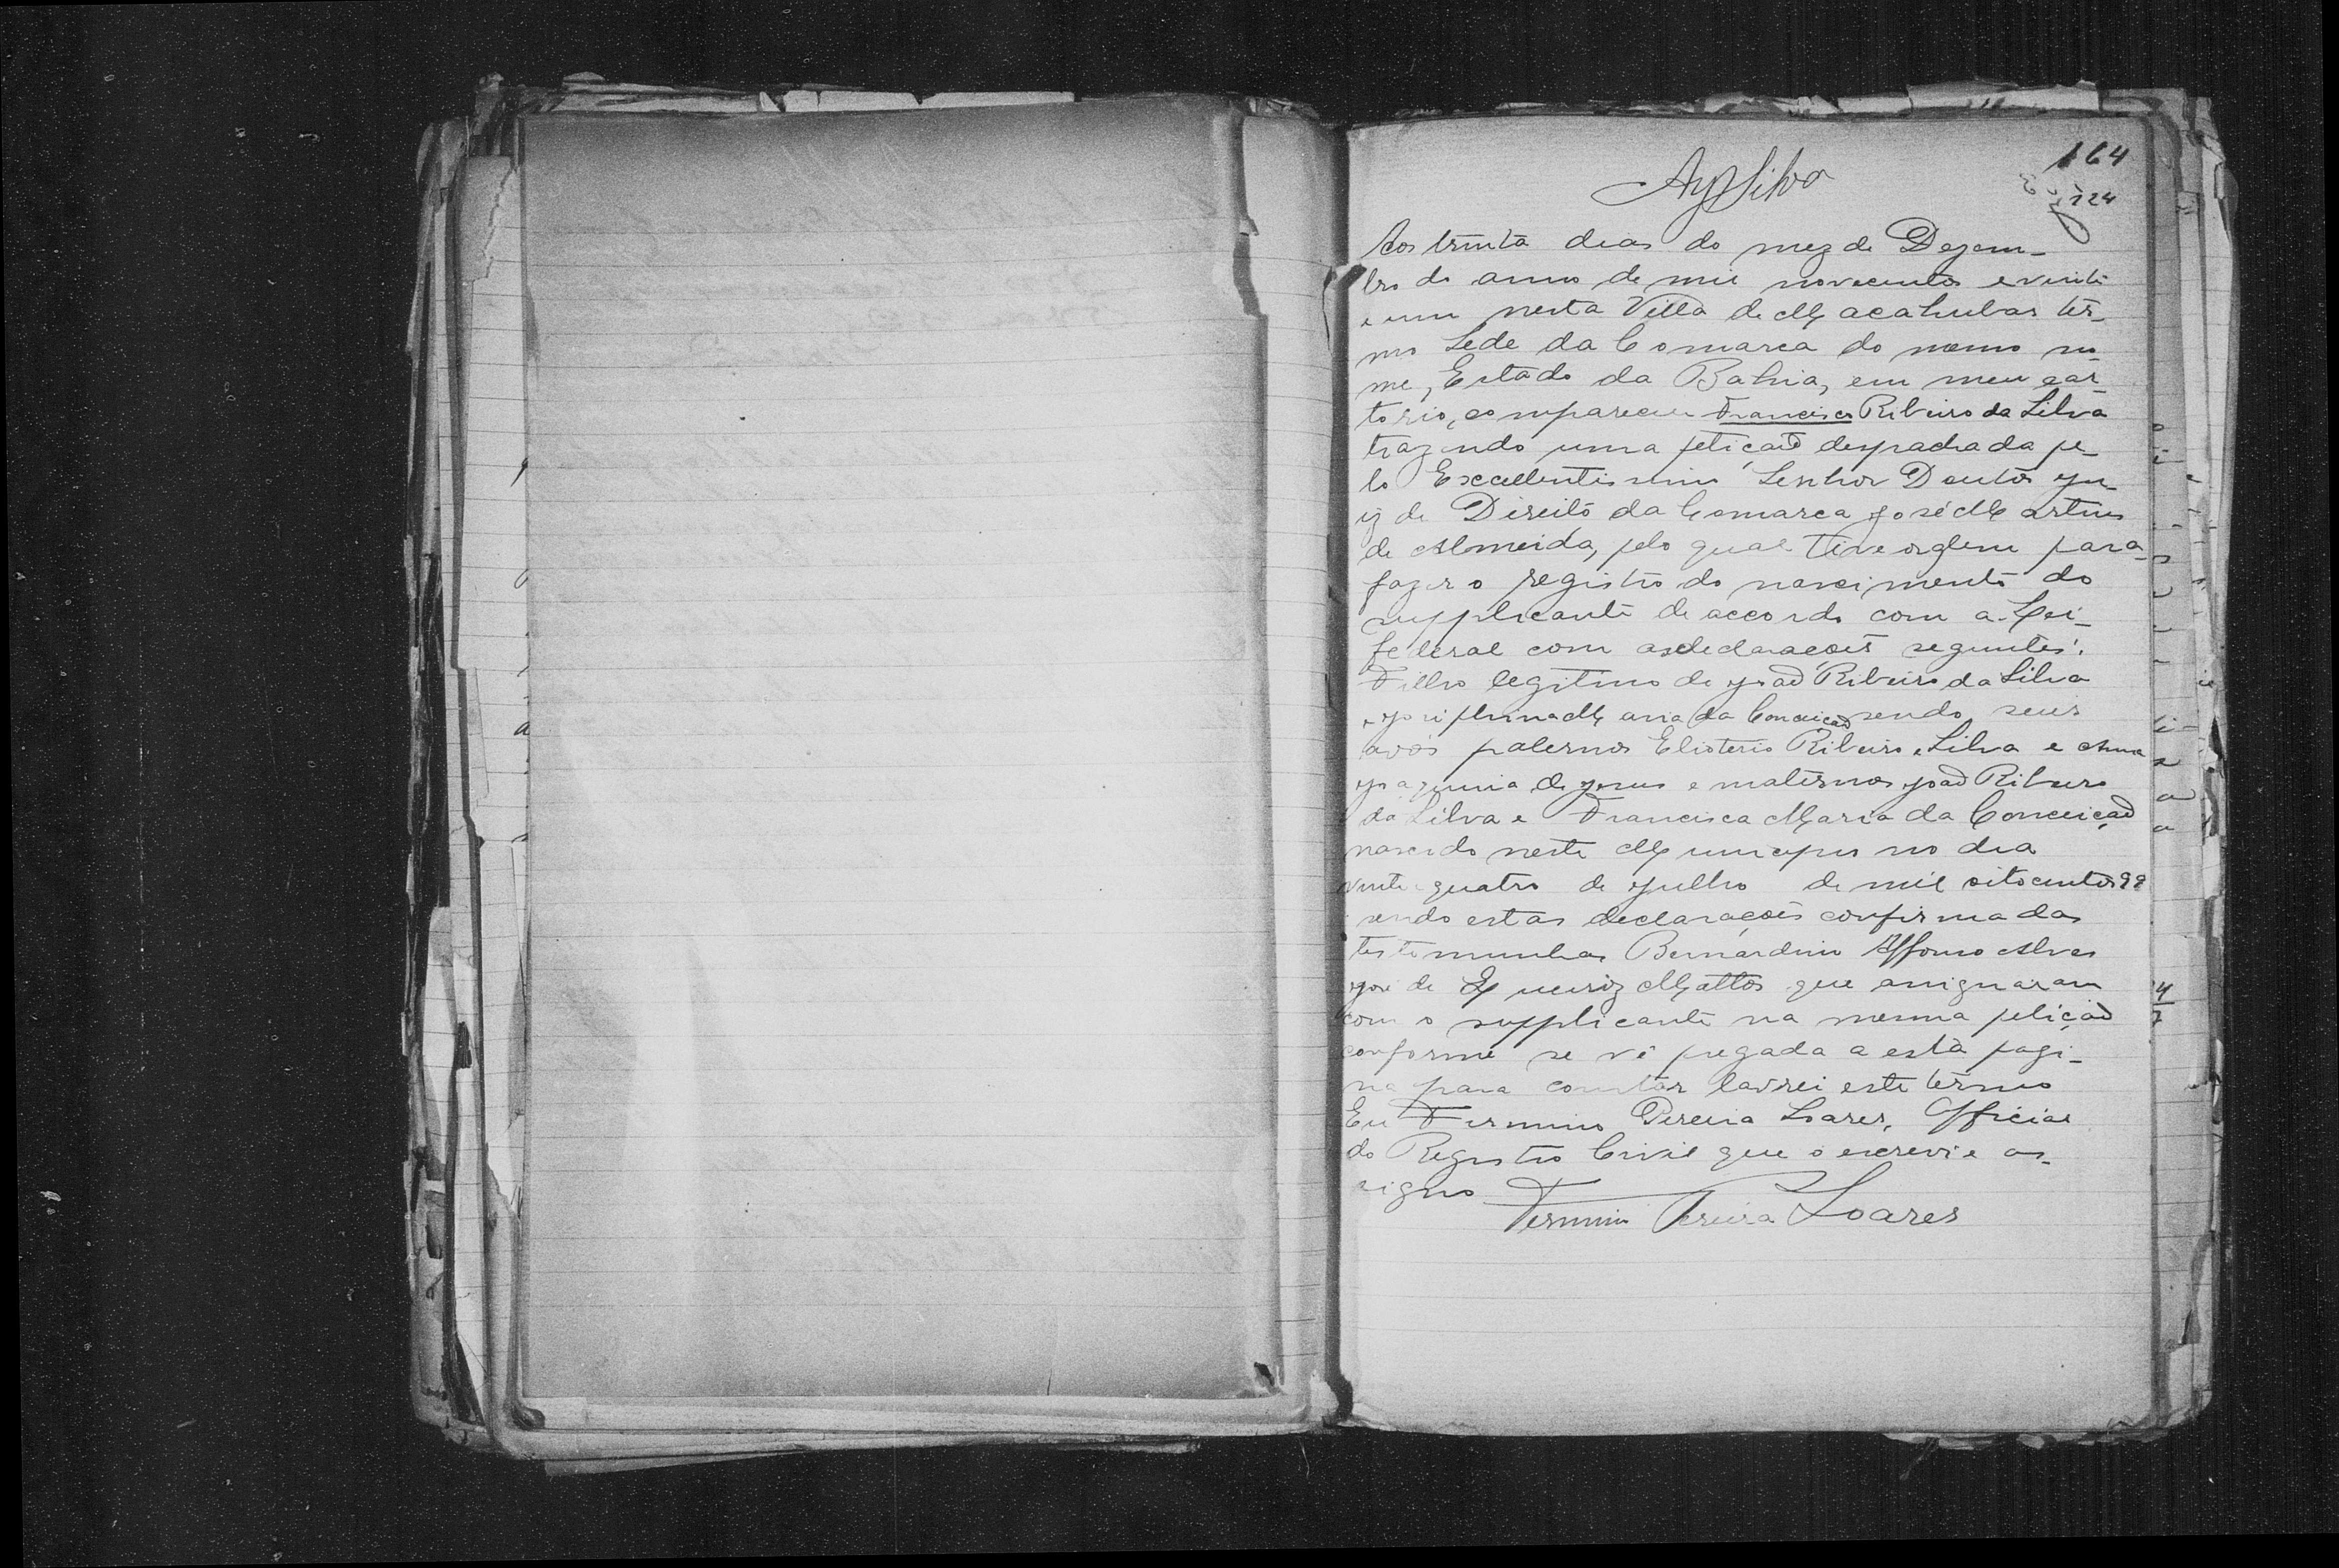 164
AySilva
124
Aos trinta dias do mez de Dezem-
bro do anno de mil novecentos e vinte
e um nesta Villa de Macahubas ter-
mo Sede da Comarca do mesmo no-
me, Estado da Bahia, em meu car-
torio, compareceu Francisco Ribeiro da Silva
trazendo uma petição despachada pe-
lo Excellentissimo Senhor Doutor Ju-
iz de Direito da Comarca José Martins
de Almeida, pelo qual tive ordem para
fazer o registro do nascimento do
supplicante de accordo com a Lei
federal com as declarações seguintes:
Filho legitimo de João Ribeiro da Silva
e Josiphina Maria da Conceição sendo seus
avós paternos Elioterio Ribeiro e Silva e Anna
Joaquina de Jesus e maternos João Ribeiro
da Silva e Francisca Maria da Conceição
nascido neste Municipio no dia
vinte quatro de Julho de mil oitocentos 98
sendo estas declarações confirmadas
testemunhas Bernardino Affonso Alves
José de Queiroz Mattos que assignaram
com o supplicante na mesma petição
conforme se vê pregada a esta pagi-
na para constar lavrei este termo
Eu Firmino Pereira Soares, Official
do Registro Civil que o escrevi e as-
signo
Firmino Pereira Soares